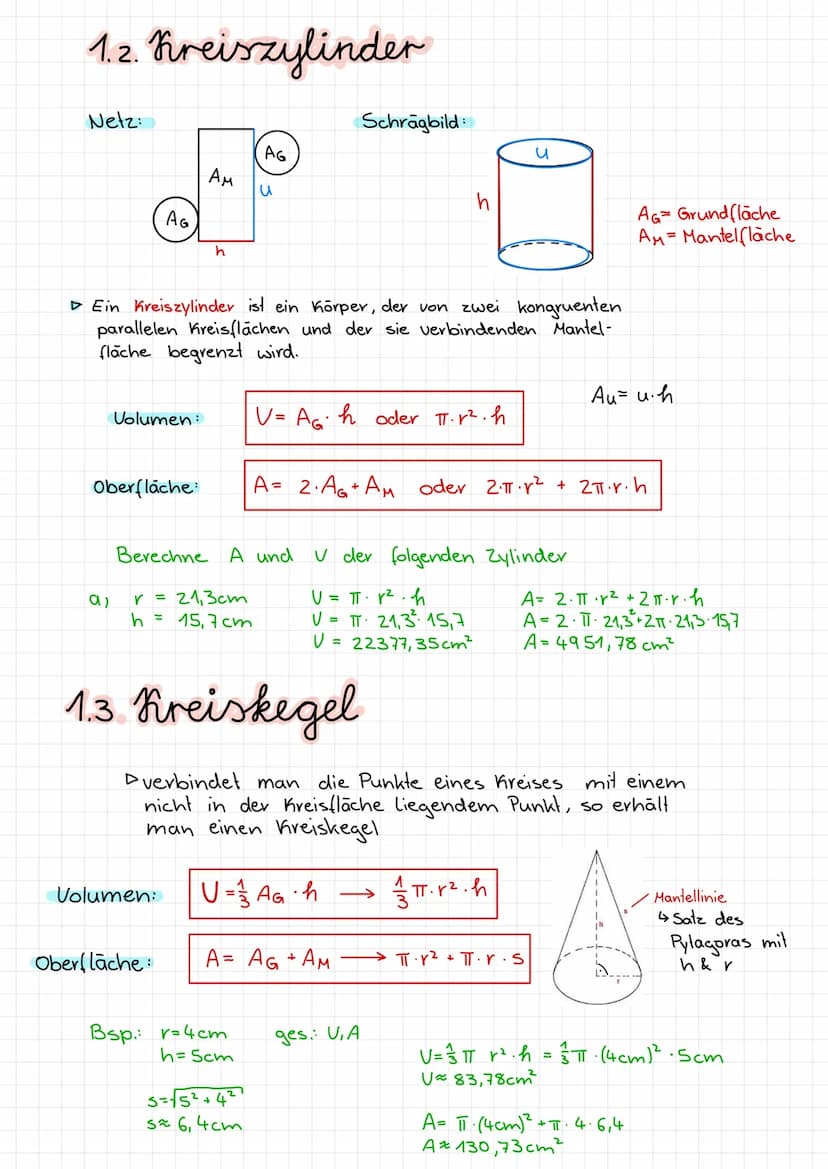 1.2. Kreiszylinder
Netz:
Schrägbild:
AG
AM
u
AG
h
u
h
AG= Grundfläche
AM= Mantelfläche
▷ Ein Kreiszylinder ist ein Körper, der von zwei kongruenten
parallelen Kreisflächen und der sie verbindenden Mantel-
fläche begrenzt wird.
Au= u·h
Volumen: V= AG·h oder π·r²·h
Oberfläche: A= 2·AG+AM oder 2·π·r² + 2π·r·h
Berechne A und V der folgenden Zylinder
a) r = 21,3cm V = π· r² ·h A= 2·π·r²+2π·r·h
h = 15,7cm V = π· 21,3²·15,7 A= 2·π·21,3²+2π·21,3·15,7
V = 22377,35cm² A= 4951,78cm²
1.3. Kreiskegel
▷ verbindet man die Punkte eines Kreises mit einem
nicht in der Kreisfläche liegendem Punkt, so erhält
man einen Kreiskegel
Volumen: V=1/3 AG·h → 1/3 π·r²·h
Oberfläche: A= AG+AM → π·r²+π·r·s
h
s
r
Mantellinie
↳ Satz des
Pylagoras mit
h & r
Bsp.: r=4cm ges.: V,A
h=5cm
s=√5²+4²
s≈ 6,4cm
V=1/3 π r²·h = 1/3 π·(4cm)²·5cm
V≈ 83,78cm²
A= π·(4cm)²+π·4·6,4
A≈130,73cm²